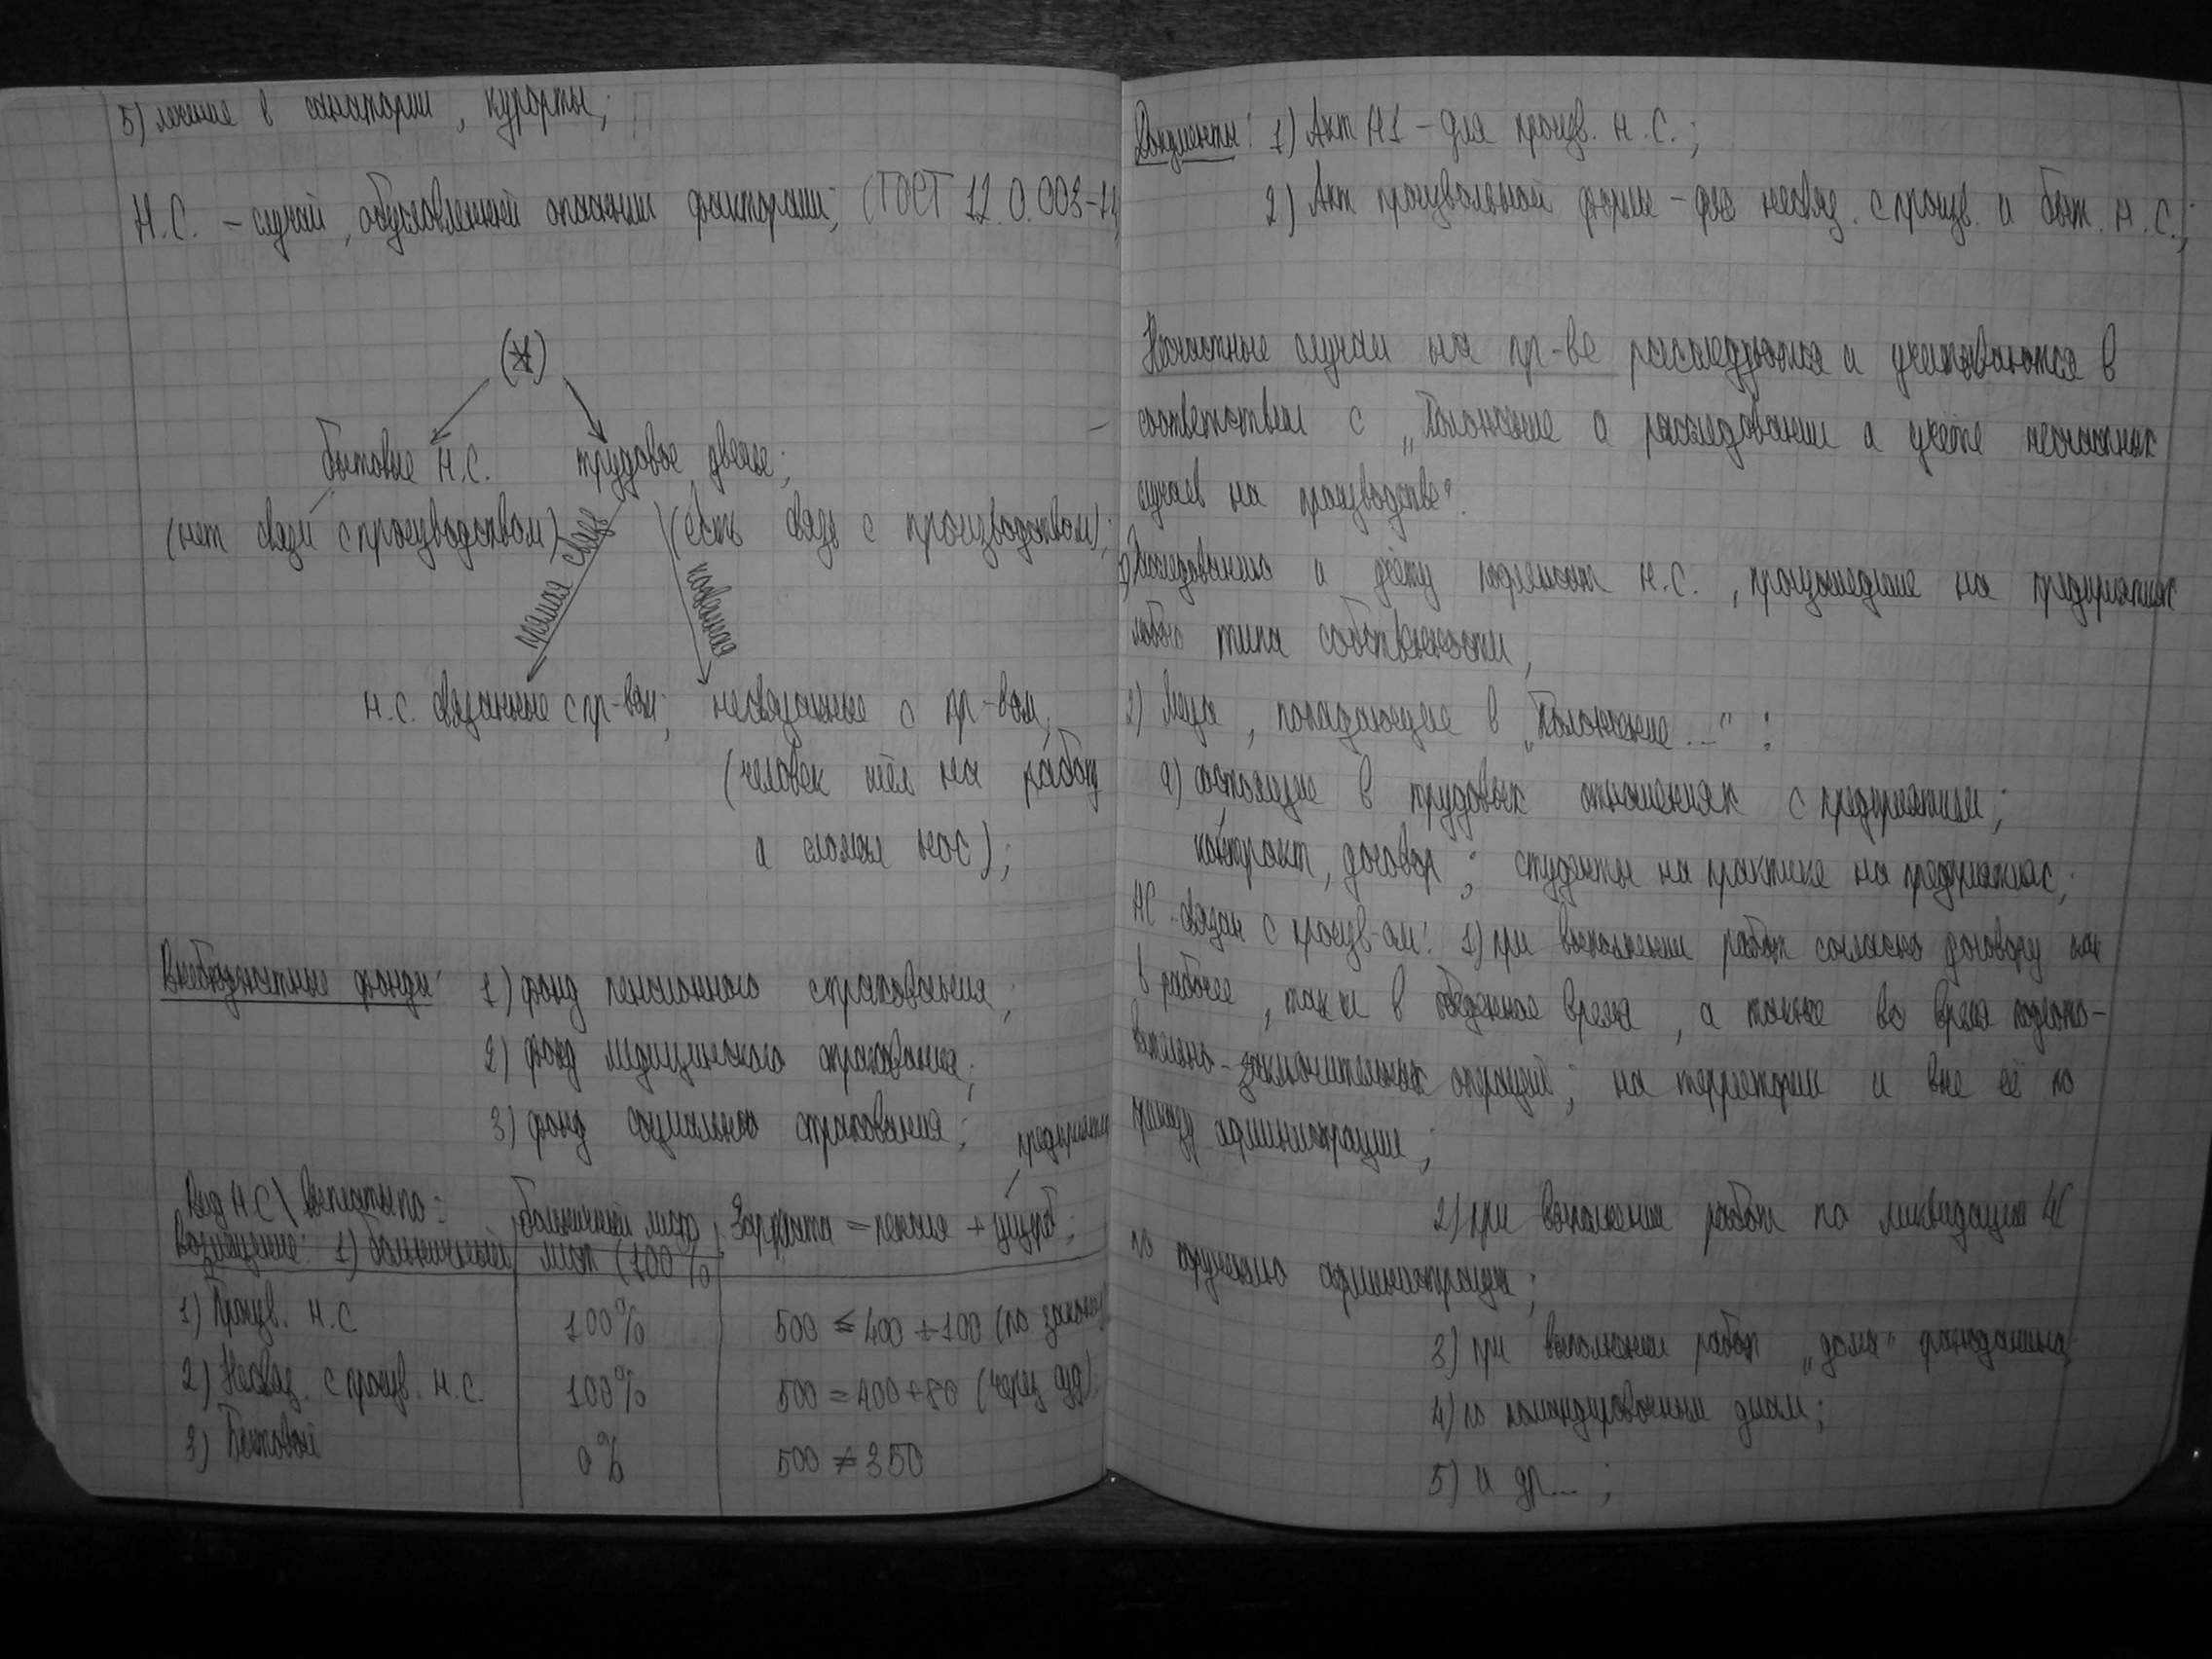 5) лечение в санатории, курорты;
Н.С. – случай, обусловленный опасными факторами; (ГОСТ 12.0.003-74
(*)
бытовые Н.С. трудовое увечье;
(нет связи с производством) (есть связь с производством);
прямая связь
косвенная
Н.С. связанные с пр-вом; несвязанные с пр-вом,
(человек шёл на работу
и сломал нос);
Внебюджетные фонды: 1) фонд пенсионного страхования;
2) фонд медицинского страхования;
3) фонд социального страхования;
предприятие
Вид Н.С \ выплаты по: больничный лист, Зарплата = пенсия + ущерб;
Возмещение: 1) больничный лист (100%)
1) Произв. Н.С 100% 500 ≤ 400 + 100 (по закону)
2) Несвяз. с произв. Н.С. 100% 500 = 400 + 80 (через суд);
3) Бытовой 0% 500 ≠ 350
Документы: 1) Акт Н1 – для произв. Н.С.;
2) Акт произвольной формы – для несвяз. с произв. и быт. Н.С.;
Несчастные случаи на пр-ве расследуются и учитываются в
соответствии с „Положение о расследовании и учёте несчастных
случаев на производстве“.
1) Расследованию и учёту подлежат Н.С., произошедшие на предприятиях
любого типа собственности,
2) Лица, попадающие в „Положение...“:
а) состоящие в трудовых отношениях с предприятием;
контракт, договор; студенты на практике на предприятиях;
НС связан с произв-ом: 1) при выполнении работ согласно договору как
в рабочее, так и в обеденное время, а также во время подгото-
вительно-заключительных операций; на территории и вне её по
приказу администрации;
2) при выполнении работ по ликвидации ЧС
по администрации;
3) при выполнении работ „дома“
4) по командировочным делам;
5) и др...;